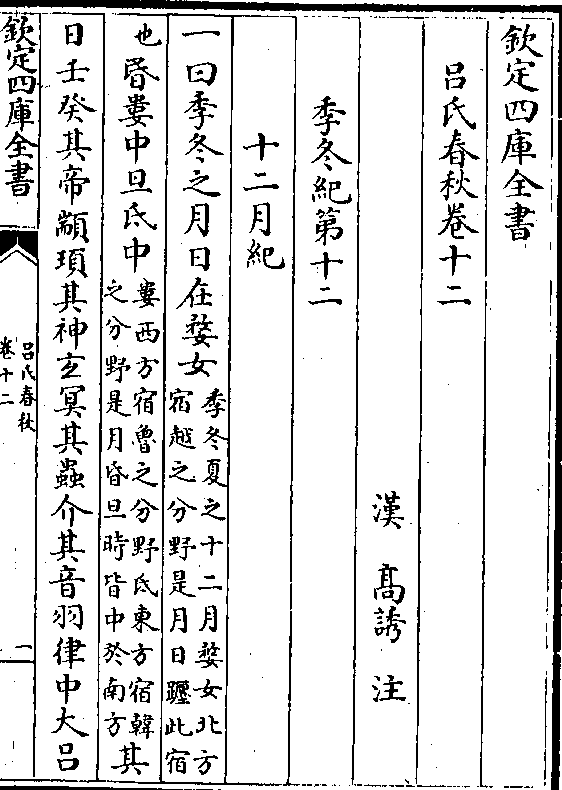 欽定四庫全書
吕氏春秋卷十二
漢 髙誘 注
季冬紀第十二
十二月紀
一曰季冬之月日在婺女季冬夏之十二月婺女北方宿越之分野是月日躔此宿
也昏婁中旦氐中婁西方宿魯之分野氐東方宿韓之分野是月昏旦時皆中於南方其
日壬癸其帝顓頊其神玄冥其蟲介其音羽律中大吕
欽定四庫全書
吕氏春秋
卷十二
一